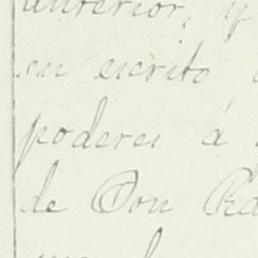 anterior, y
su escrito
poderes á
de Don